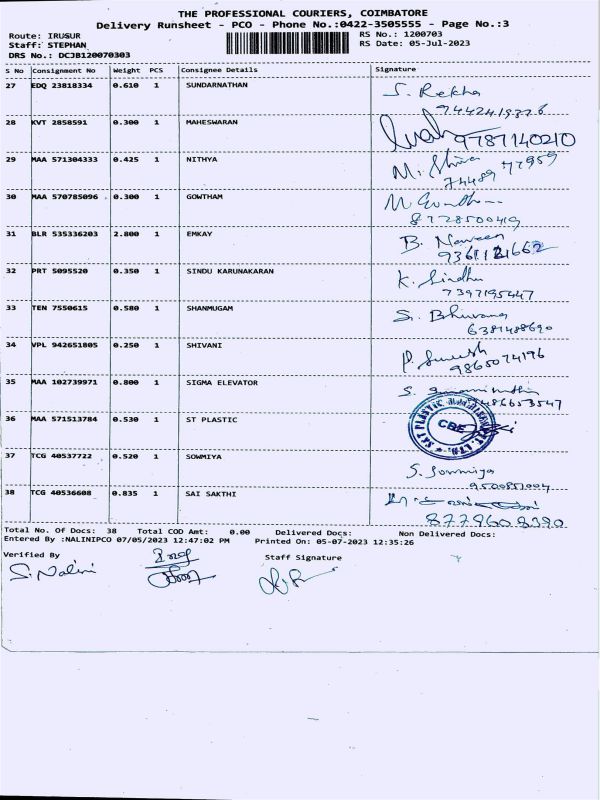 THE PROFESSIONAL COURIERS, COIMBATORE
Delivery Runsheet - PCO - Phone No.:0422-3505555 - Page No.:3
Route: IRUSUR
RS No.: 1200703
Staff: STEPHAN
RS Date: 05-Jul-2023
DRS No.: DCJB120070303
S No Consignment No Weight PCS Consignee Details Signature
27 EDQ 23818334 0.610 1 SUNDARNATHAN S. Rekha
9442419376
28 KVT 2858591 0.300 1 MAHESWARAN 9787140210
29 MAA 571304333 0.425 1 NITHYA M. Shiva
74489 77959
30 MAA 570785096 0.300 1 GOWTHAM
8778500419
31 BLR 535336203 2.800 1 EMKAY B. Naveen
9361121662
32 PRT 5095520 0.350 1 SINDU KARUNAKARAN K. Sindhu
7397195447
33 TEN 7550615 0.580 1 SHANMUGAM S. Bhuvana
6381488690
34 VPL 942651805 0.250 1 SHIVANI P. Suresh
9865074196
35 MAA 102739971 0.800 1 SIGMA ELEVATOR
36 MAA 571513784 0.530 1 ST PLASTIC CBE
37 TCG 40537722 0.520 1 SOWMIYA S. Sowmiya
9500851004
38 TCG 40536608 0.835 1 SAI SAKTHI
Total No. Of Docs: 38 Total COD Amt: 0.00 Delivered Docs: Non Delivered Docs:
Entered By :NALINIPCO 07/05/2023 12:47:02 PM Printed On: 05-07-2023 12:35:26
Verified By Staff Signature
S. Nalini